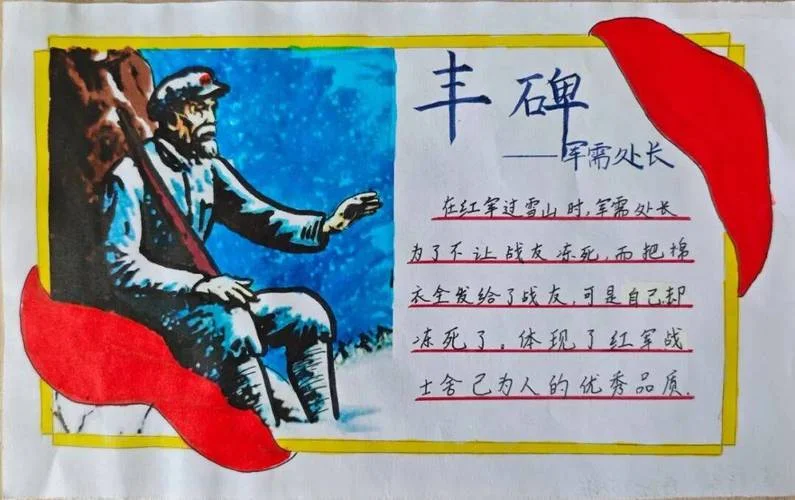 丰碑
——军需处长
在红军过雪山时,军需处长
为了不让战友冻死,而把棉
衣全发给了战友,可是自己却
冻死了。体现了红军战
士舍己为人的优秀品质.